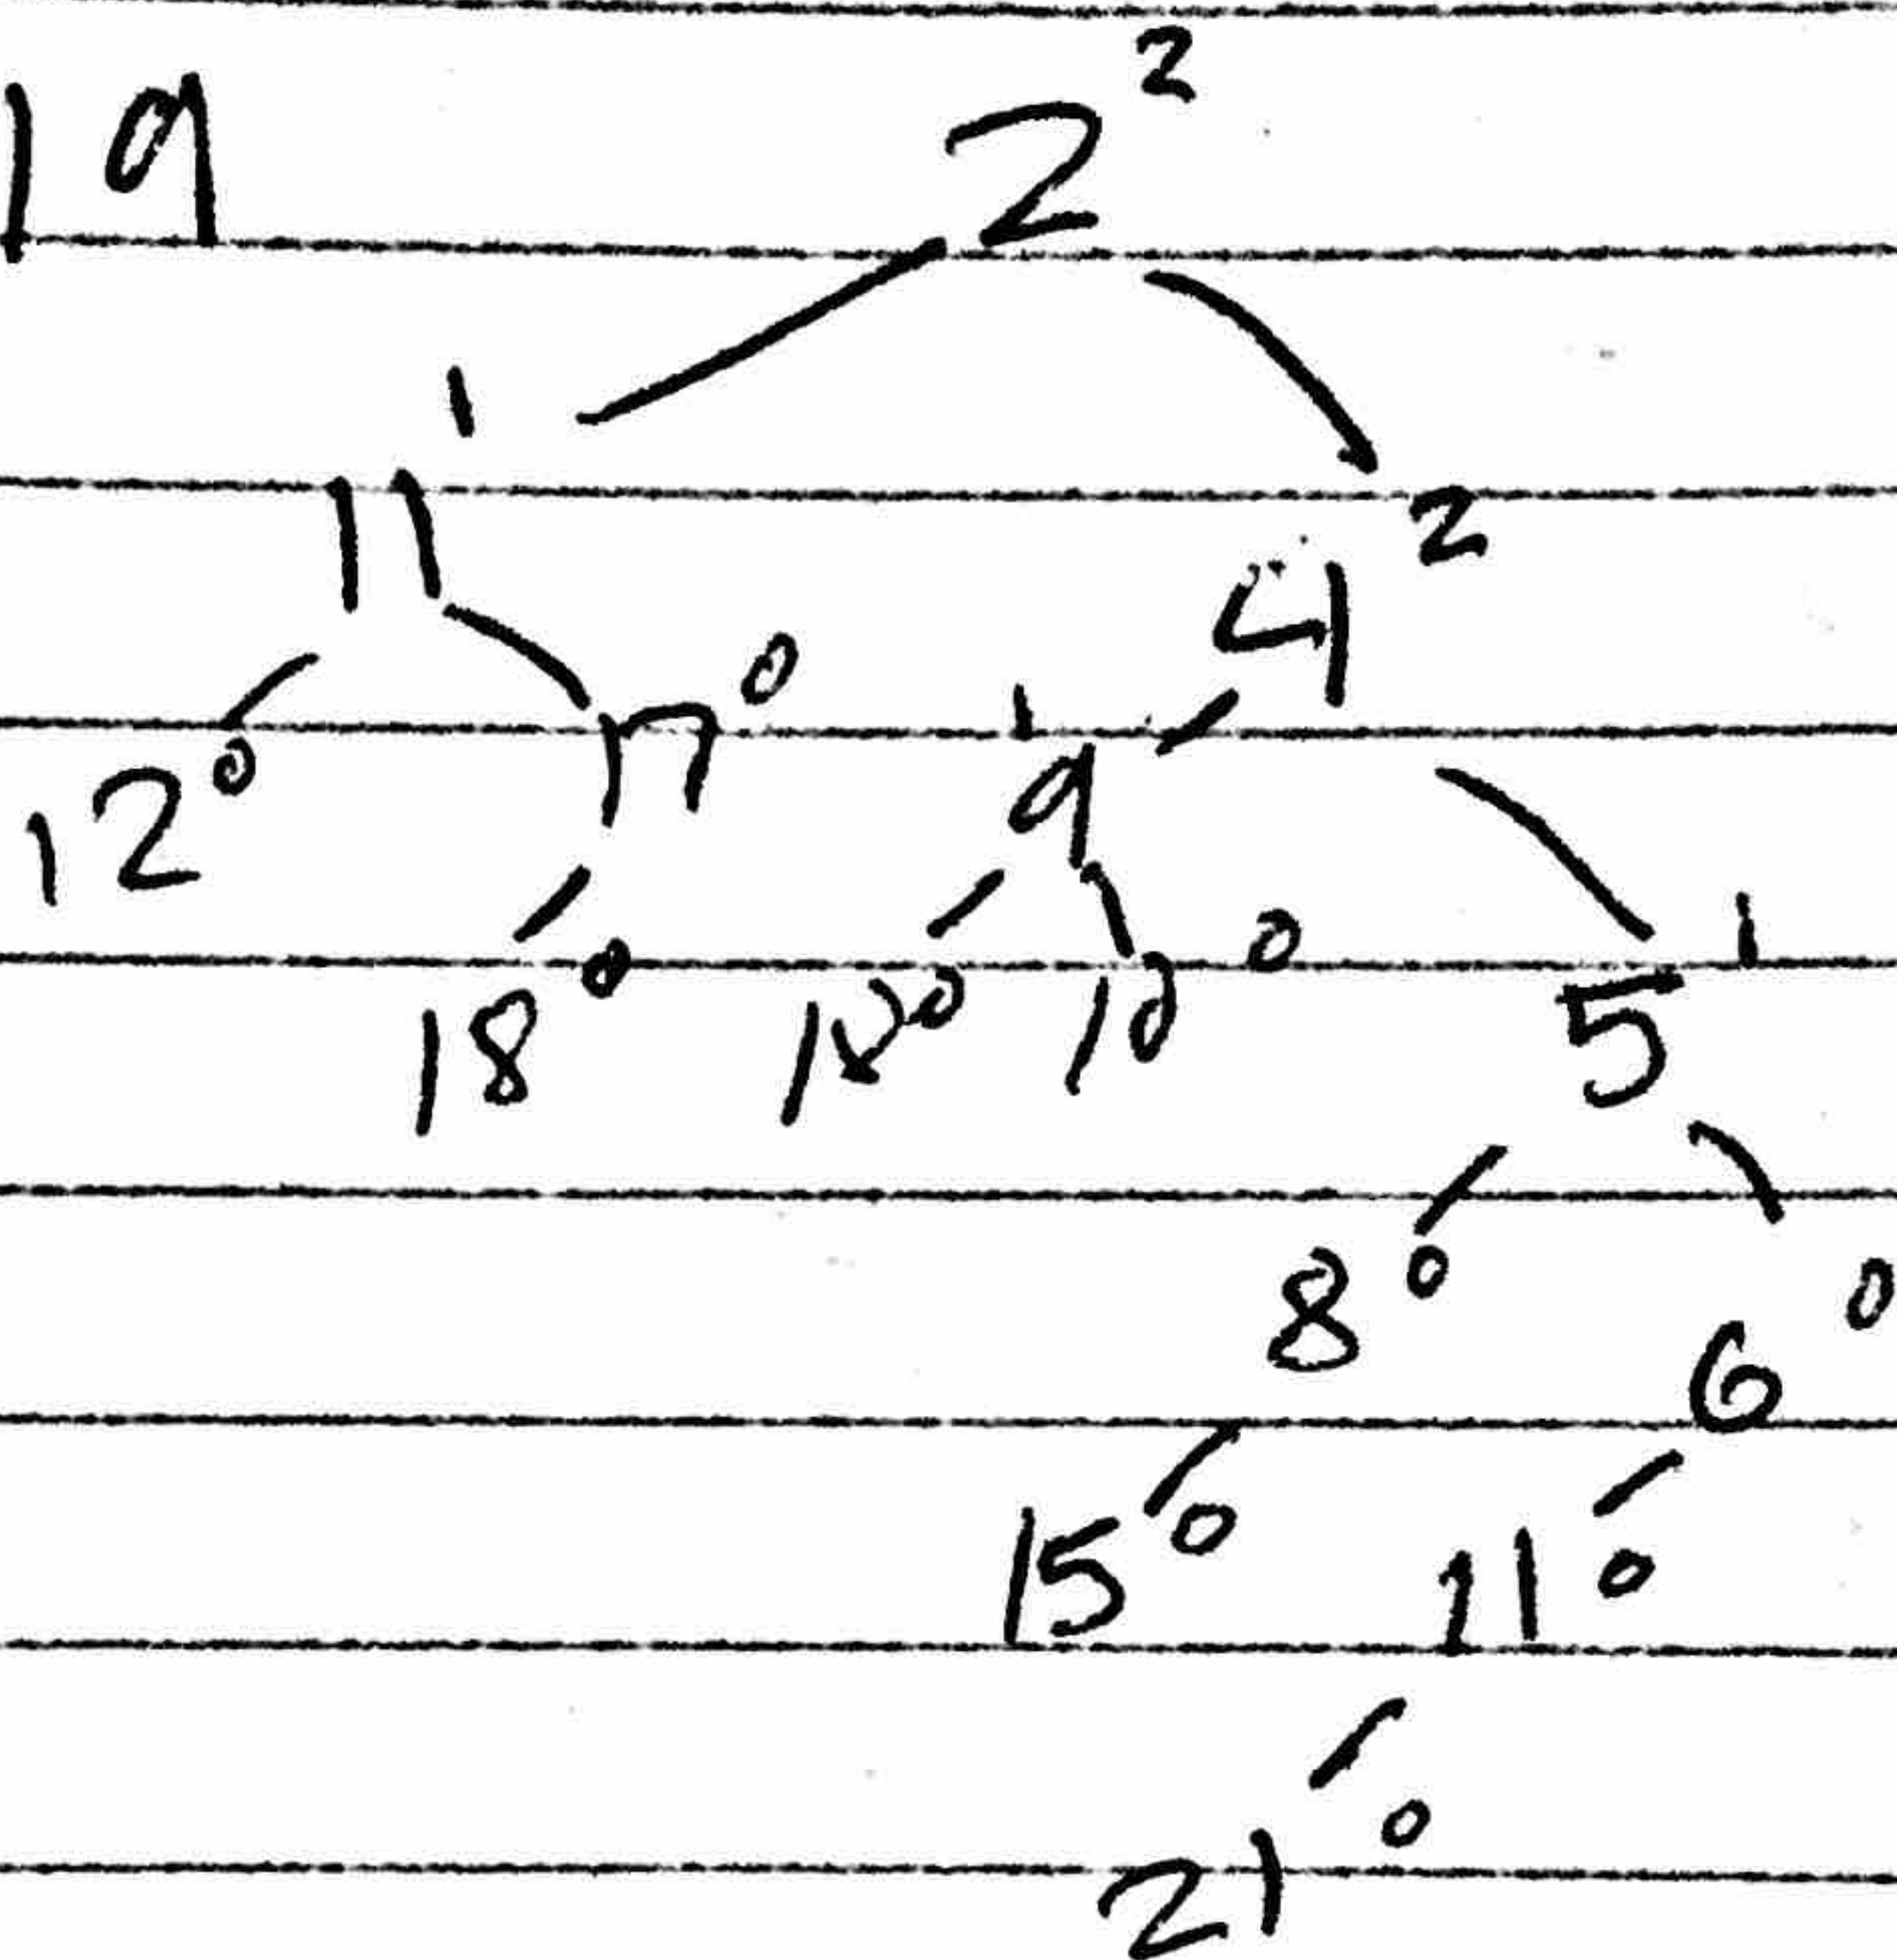 19 2²
11¹ 4²
12⁰ 17⁰ 9¹
18⁰ 10⁰ 5¹
8⁰ 6⁰
15⁰ 11⁰
21⁰